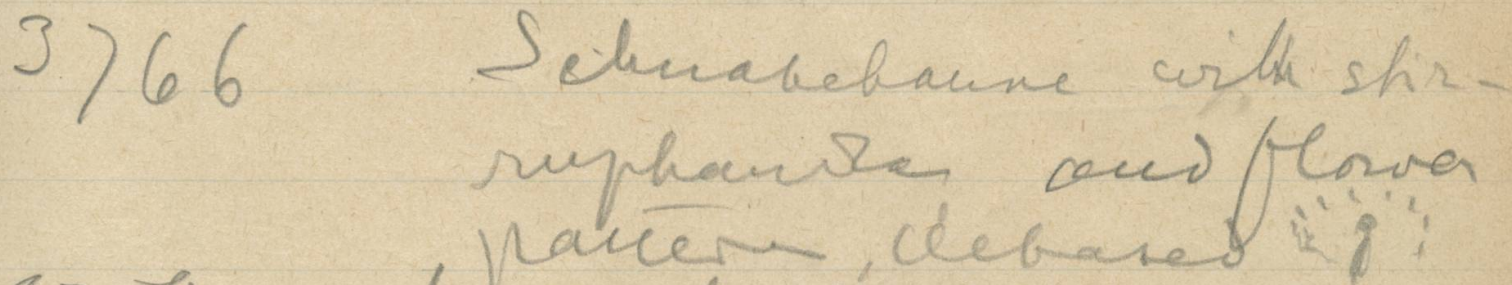 3766 Schnabelkanne with stir-
ruphandle and flower
pattern, debased